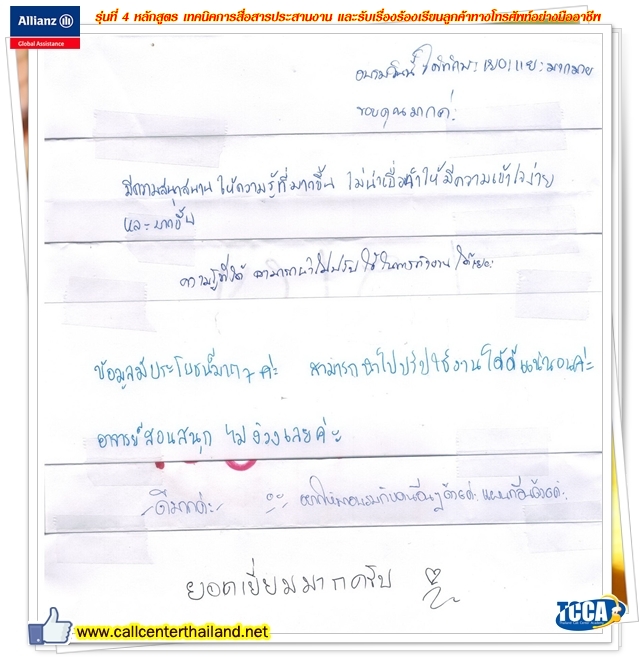 Allianz
Global Assistance
รุ่นที่ 4 หลักสูตร เทคนิคการสื่อสารประสานงาน และรับเรื่องร้องเรียนลูกค้าทางโทรศัพท์อย่างมืออาชีพ
อบรมวันนี้ ได้ทักษะเยอะแยะมากมาย
ขอบคุณมากค่ะ
มีความสนุกสนาน ให้ความรู้ที่มากขึ้น ไม่น่าเบื่อทำให้มีความเข้าใจง่าย
และมากขึ้น
ความรู้ที่ได้ สามารถนำไปปรับใช้ในการทำงาน ได้เยอะ
ข้อมูลมีประโยชน์มากๆ ค่ะ สามารถนำไปปรับใช้งานได้ดีแน่นอนค่ะ
อาจารย์สอนสนุก ไม่ง่วงเลยค่ะ
ดีมากค่ะ
ยอดเยี่ยมมากครับ
www.callcenterthailand.net
TCCA